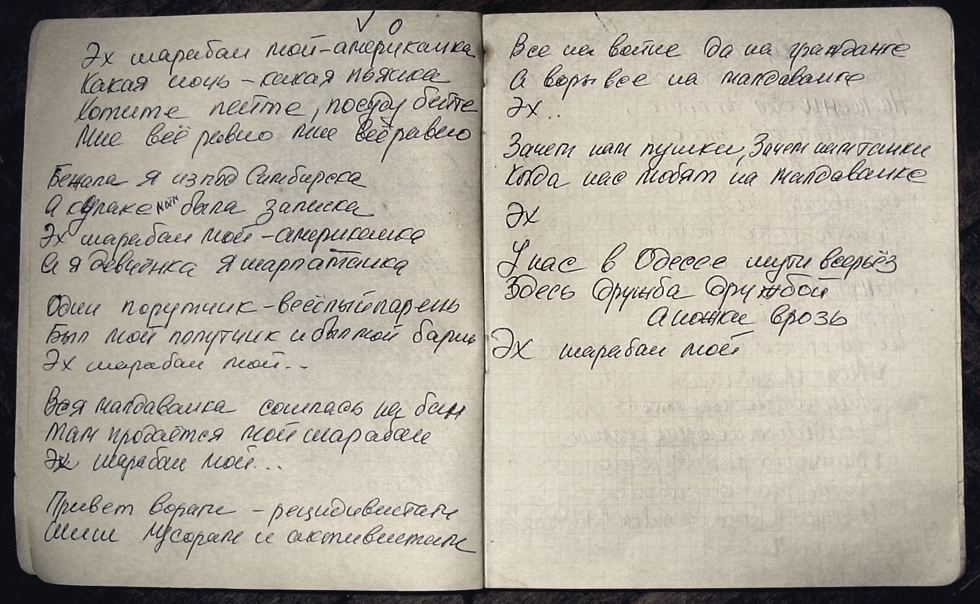 Эх шарабан мой-американка
Какая ночь-какая пьянка
Хотите пейте, посуду бейте
Мне всё равно мне всё равно
Бежала я из под Симбирска
А в кулаке была записка
Эх шарабан мой-американка
А я девчёнка я шарпатанка
Один порутчик-весёлый парень
Был мой попутчик и был мой барин
Эх шарабан мой...
Вся малдаванка сошлась на бан
Там продаётся мой шарабан
Эх шарабан мой...
Привет ворам - рецидивистам
Шиш мусорам и активистам
Все на войне да на гражданке
А воры все на малдаванке
Эх..
Зачем нам пушки, Зачем нам танки
Когда нас любят на малдаванке
Эх
У нас в Одессе шути всерьёз
Здесь дружба дружбой
А ножки врозь
Эх шарабан мой